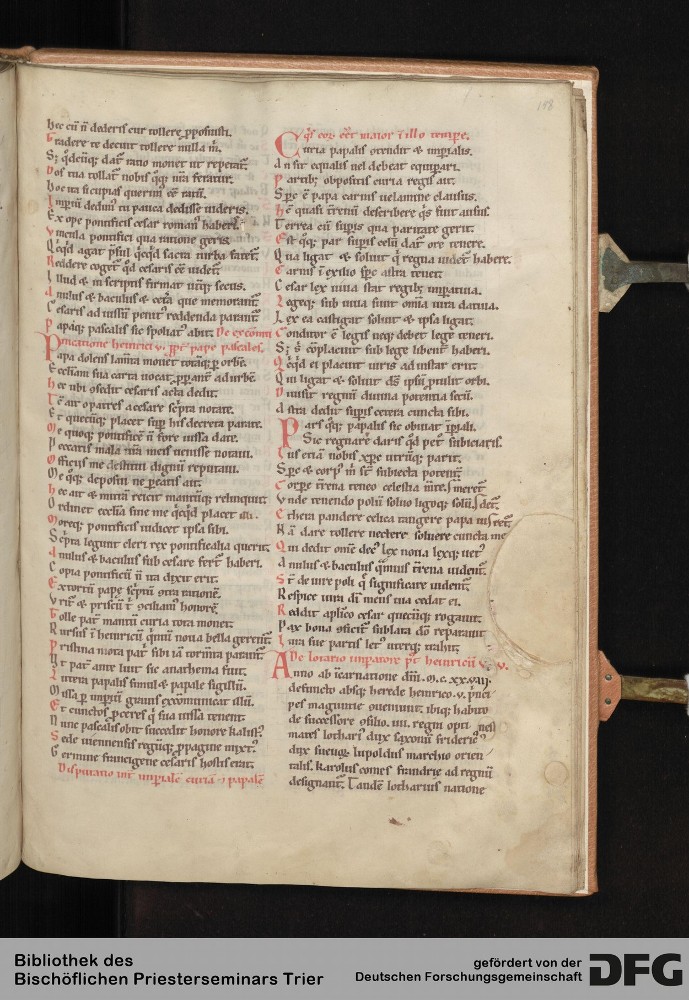 Hec cū n̄ dederis cur tollere pposuisti.
Tradere te decuit tollere nulla m̄.
Dos tua tollat nobis
Hoc
Impiū dedim' tu pauca dedisse uideris.
Ex ope pontificis cesar roman' haberi.
Vincula pontifici qua ratione geris.
Qcqd agat psul qcqd sacra turba
Reddere coget qd cesaris ee uident.
Illud & in scriptis firmat secus.
Anulus & baculus & cetā que memorant.
Cesaris ad iussū penit' reddenda parant.
Papaq; pascalis sic spoliat' abit. De excōmu
nicatione heinrici v. pape pascalis.
Papa dolens lamīta monet totāq; p orbē.
Eccliam sua carta uocat adurbē.
Hec ubi cesaris acta dedit.
a cesare scpta notare.
Et quecūq; placet sup his decreta parare.
Me quoq; pontificē n̄ fore iussa dare.
Peccatis mala uīa meis uenisse notaui.
Officiis me destitui dignū reputaui.
Me qq; deposui ne
Hec ait & mitrā reicit mantūq; relinquit.
Ordinet ecclīa sine me qcqd placet illi.
pontificis iudicet ipsa sibi.
Scpta legunt cleri rex pontificalia querit.
Anulus & baculus sub cesare fert haberi.
Copia pontificū n̄ ita dixit erit.
Extortū pape scptū ratione.
honore
Tolle pat mantū curia tota monet.
Rursus ī heinricū nouā bella gerent.
Pristina mota pat sibi iā tormta parant.
Vt pat ante luit sic anathema fuit.
Litera papalis simul & papale sigillū.
Missa p impiū grauis excōmunicat illū.
Et cunctos pceres q sua iussa tenent.
Nunc pascalis obit succedit honore kalist'.
Sede uiennensis regūq; ppagine mixt'.
Germine francigene cesaris hostis erat.
Disputatio int impiale curiā & papale
qs eor eet maior ī illo tempre.
Curia papalis ostendit & impialis.
An sit equalis uel debeat equipari.
Partib; obpositis curia regis ait.
Spc ē papa earnis uelamine clausus.
describere qs fuit ausus.
Terrea cū supis qua paritate gerit.
Est qq; par supis celū dat ore tenere.
Qua ligat & soluit q regna uidet habere.
Carnis ī exilio spc alta tenet.
Cesar lex uiua stat regib; impatiua.
Legeq; sub uiua sunt omīa iura datiua.
Lex ea castigat soluit & ipsa ligat.
Conditor ē legis neq; debet lege teneri.
S; s; cōplacuit sub lege libent haberi.
Qcqd ei placuit iuris ad instar erit.
Qui ligat & soluit ds ipsū ptulit orbi.
Diuisit regnū diuina potentia secū.
Astra dedit supis cetera cuncta sibi.
Pars qq; papalis sic obuiat ipiali.
Sic regnare daris qd pet subiciaris.
Ius etiā nobis xpe utrūq; parit.
Spc & corp' m st subiecta potenti
Corpe trena teneo celestia mte.
Vnde tenendo polū soluo ligoq; solū.
Ethera pandere celica tangere papa
Nā dare tollere nectere soluere cuncta
Qui dedit omē dec' lex noua lexq; uet'
Anulus & baculus quis trena uident.
St de iure poli q significare uident.
Respice iura di mens tua cedat ei.
Reddit aplico cesar quecūq; rogauit.
Pax bona sublata dō reparauit.
Iura sue partis let' uterq; trahit.
De lotario imperatore pt heinricū v.
Anno ab īcarnatione dni. M.C.xx.viij.
defuncto absq; herede heinrico .v. pnci
pes maguntie ibiq; habito
de successore .iiii. regni opti
mates lothari' dux saxonū frideric'
dux sueuoȝ lupoldus marchio orien
talis. karolus comes flandrie ad regnū
designant. Tandē lotharius natione
198
Bibliothek des
Bischöflichen Priesterseminars Trier
gefördert von der
Deutschen Forschungsgemeinschaft
DFG